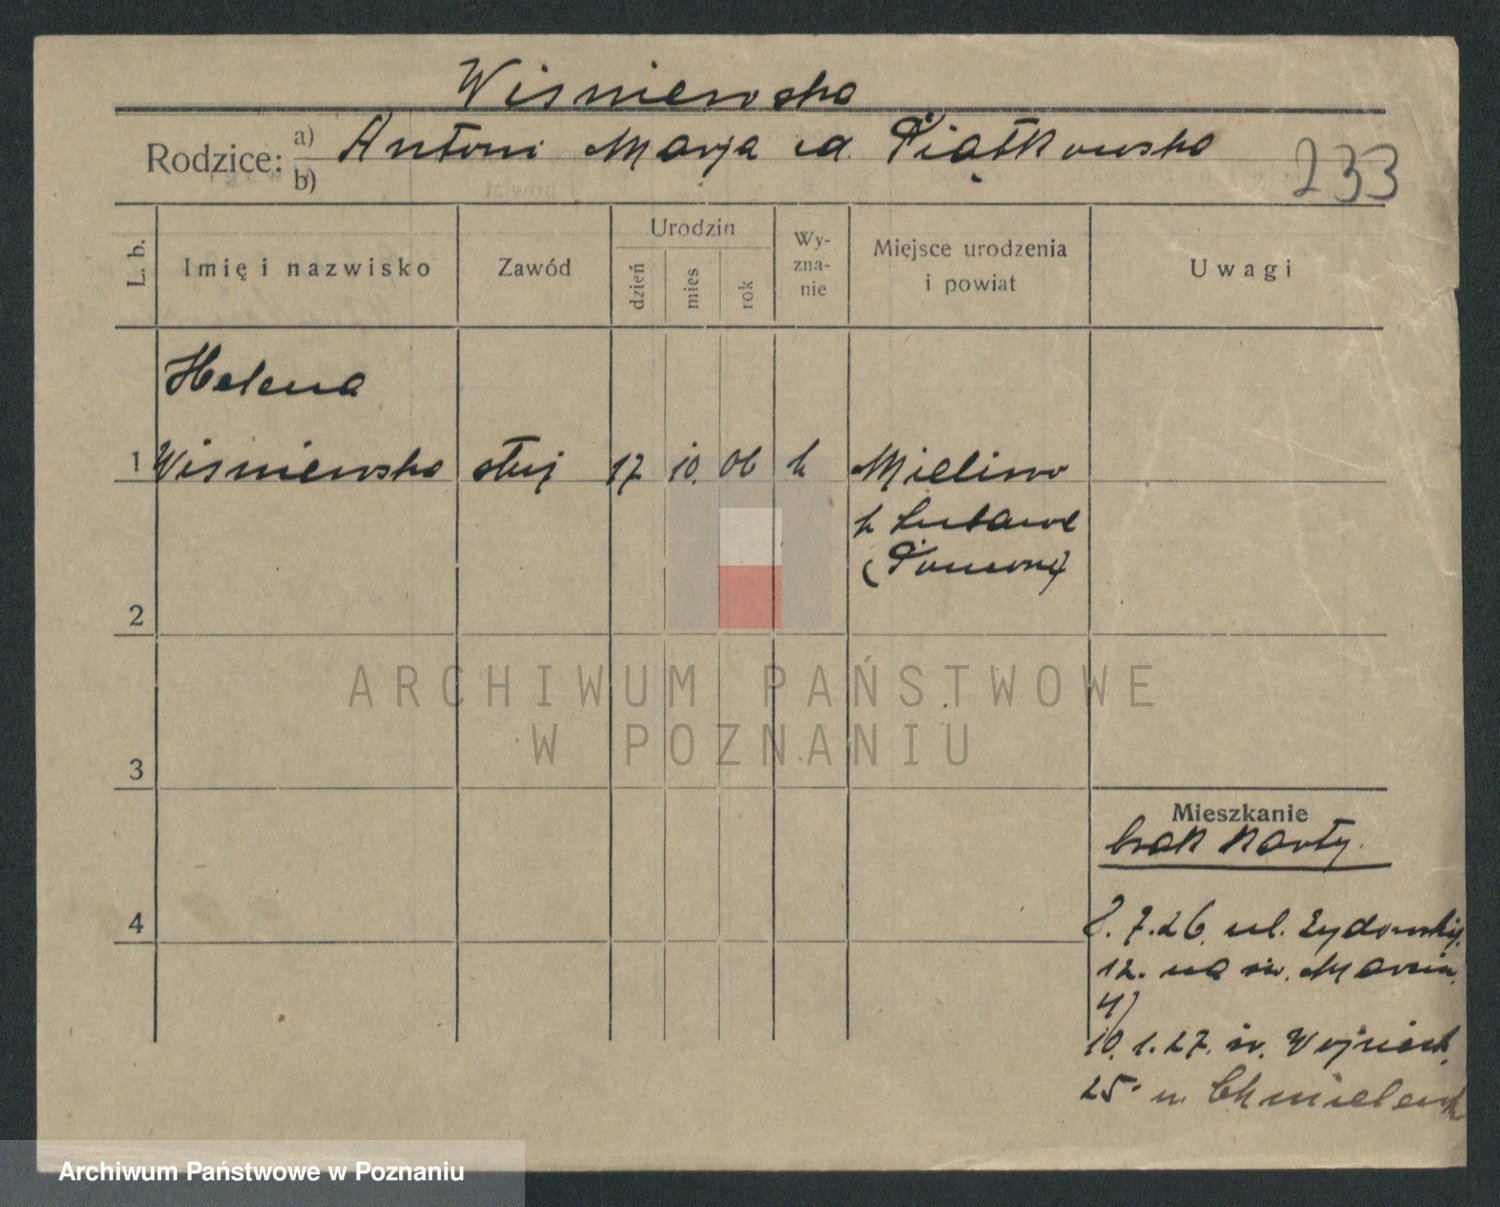 Wiśniewska
Rodzice: a) Antoni Marja zd. Piątkowska
b)
233
L. b.
Imię i nazwisko
Zawód
Urodzin
dzień
mies
rok
Wy-
zna-
nie
Miejsce urodzenia
i powiat
Uwagi
Helena
1 Wiśniewska służ 17 10. 06 k Mieliwo
k Lubawe
(Pomorze)
2
ARCHIWUM PAŃSTWOWE
W POZNANIU
3
Mieszkanie
brak karty.
4
8.7.26. ul. Żydowskiej
12. na św. Marcin
4)
10.1.27. św. Wojciech
25 u. Chmielewsk
Archiwum Państwowe w Poznaniu